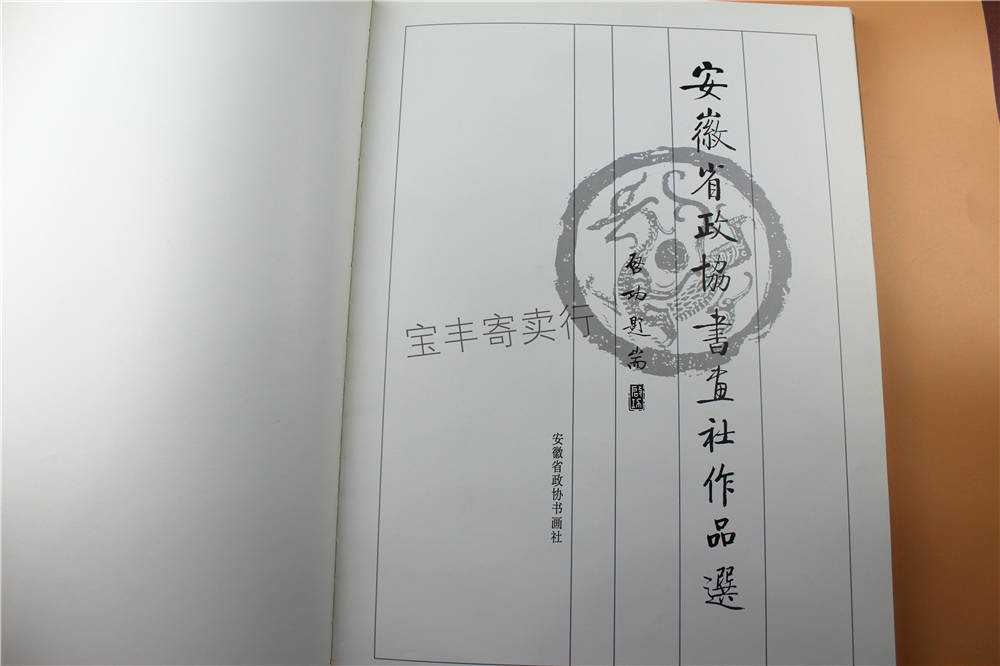 安徽省政協書畫社作品選
啓功題耑
啓功
安徽省政协书画社
宝丰寄卖行